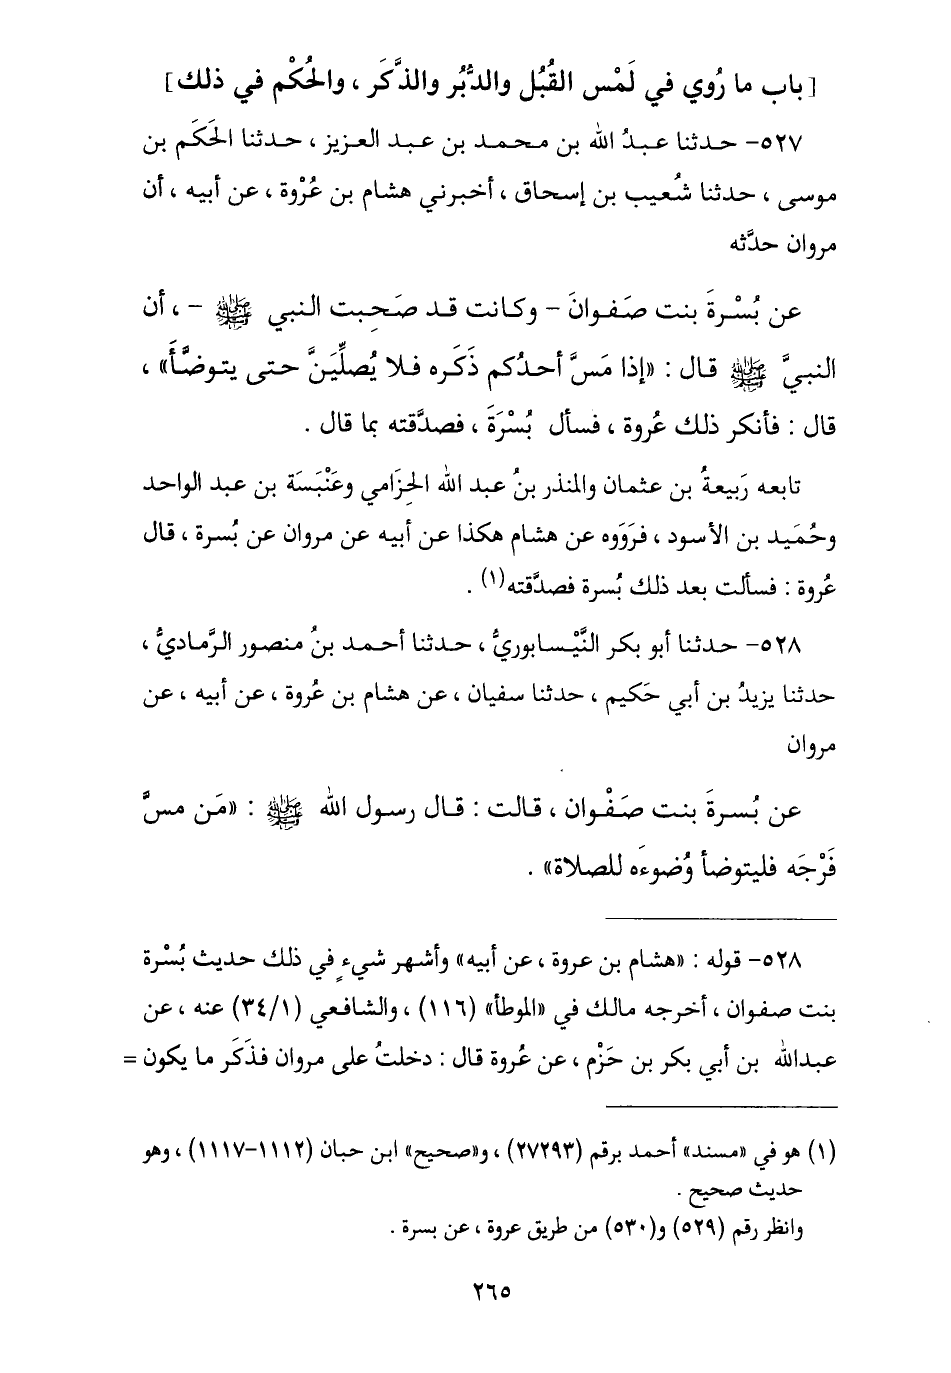 [باب ما رُوي في لَمْس القُبُل والدُّبُر والذَّكَر ، والحُكْم في ذلك]
٥٢٧- حدثنا عبدُ الله بن محمد بن عبد العزيز ، حدثنا الحَكَم بن
موسى ، حدثنا شُعيب بن إسحاق ، أخبرني هشام بن عُرْوة ، عن أبيه ، أن
مروان حدَّثه
عن بُسْرةَ بنت صَفوانَ - وكانت قد صَحِبت النبي ﷺ - ، أن
النبيَّ ﷺ قال : «إذا مَسَّ أحدُكم ذَكَره فلا يُصلِّيَنَّ حتى يتوضَّأَ» ،
قال : فأنكر ذلك عُروة ، فسأل بُسْرَةَ ، فصدَّقته بما قال .
تابعه رَبيعةُ بن عثمان والمنذر بنُ عبد الله الحِزَامي وعَنْبَسَة بن عبد الواحد
وحُمَيد بن الأسود ، فرَوَوه عن هشام هكذا عن أبيه عن مروان عن بُسرة ، قال
عُروة : فسألت بعد ذلك بُسرة فصدَّقته(١) .
٥٢٨- حدثنا أبو بكر النَّيْسابوريُّ ، حدثنا أحمد بنُ منصور الرَّماديُّ ،
حدثنا يزيدُ بن أبي حَكيم ، حدثنا سفيان ، عن هشام بن عُروة ، عن أبيه ، عن
مروان
عن بُسرةَ بنت صَفْوان ، قالت : قال رسول الله ﷺ : «مَن مسَّ
فَرْجَه فليتوضأ وُضوءَه للصلاة» .
٥٢٨- قوله : «هشام بن عروة ، عن أبيه» وأشهر شيءٍ في ذلك حديث بُسْرة
بنت صفوان ، أخرجه مالك في «الموطأ» (١١٦) ، والشافعي (٣٤/١) عنه ، عن
عبدالله بن أبي بكر بن حَزْم ، عن عُروة قال : دخلتُ على مروان فذَكَر ما يكون =
(١) هو في «مسند» أحمد برقم (٢٧٢٩٣) ، و«صحيح» ابن حبان (١١١٢-١١١٧) ، وهو
حديث صحيح .
وانظر رقم (٥٢٩) و(٥٣٠) من طريق عروة ، عن بسرة .
٢٦٥